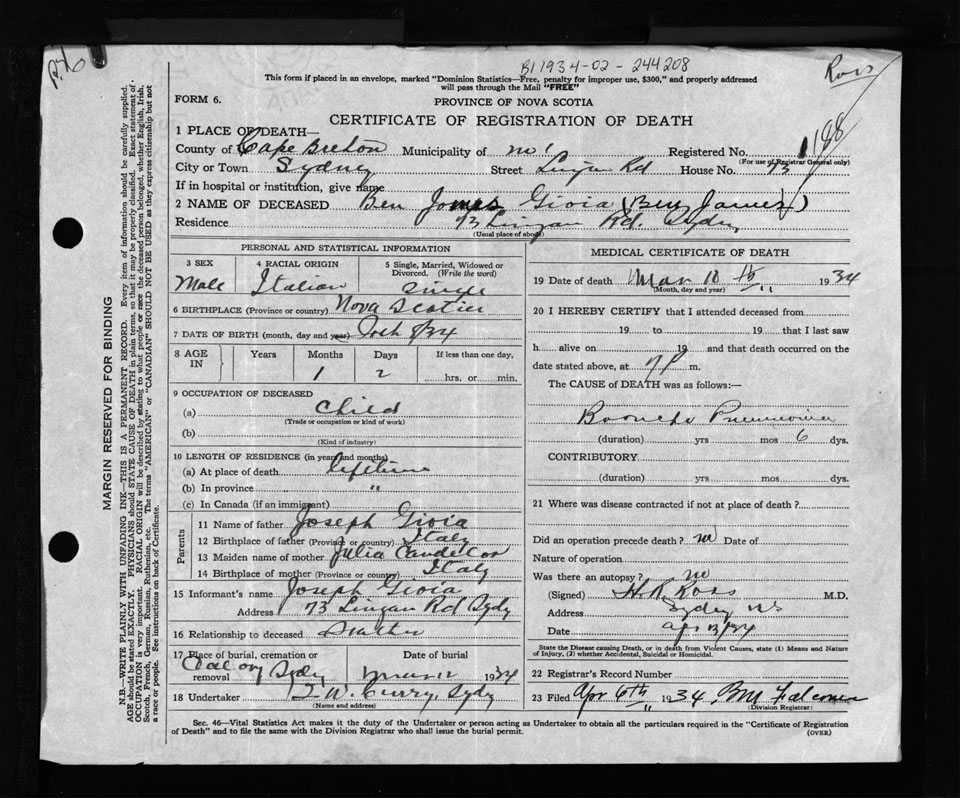 B11934-02-244208
Ross
This form if placed in an envelope, marked "Dominion Statistics—Free, penalty for improper use, $300," and properly addressed
will pass through the Mail "FREE"
FORM 6.
PROVINCE OF NOVA SCOTIA
CERTIFICATE OF REGISTRATION OF DEATH
1 PLACE OF DEATH—
County of Cape Breton Municipality of Registered No.
(For use of Registrar General only)
City or Town Sydney Street Lingan Rd House No. 73
If in hospital or institution, give name
2 NAME OF DECEASED Ben James Gioia (Ben James)
Residence 73 Lingan Rd. Sydney
(Usual place of abode)
PERSONAL AND STATISTICAL INFORMATION
3 SEX 4 RACIAL ORIGIN 5 Single, Married, Widowed or
Divorced. (Write the word)
Male Italian Single
6 BIRTHPLACE (Province or country) Nova Scotia
7 DATE OF BIRTH (month, day and year)
8 AGE IN Years Months Days If less than one day,
1 2 hrs. or min.
9 OCCUPATION OF DECEASED
(a) Child
(Trade or occupation or kind of work)
(b)
(Kind of industry)
10 LENGTH OF RESIDENCE (in years and months)
(a) At place of death lifetime
(b) In province "
(c) In Canada (if an immigrant)
Parents
11 Name of father Joseph Gioia
12 Birthplace of father (Province or country) Italy
13 Maiden name of mother Julia
14 Birthplace of mother (Province or country) Italy
15 Informant's name Joseph Gioia
Address 73 Lingan Rd Sydy
16 Relationship to deceased
17 Place of burial, cremation or Date of burial
removal Calvary Sydy Mar 12 1934
18 Undertaker T. W. Curry, Sydy
(Name and address)
MEDICAL CERTIFICATE OF DEATH
19 Date of death Mar 10 th 1934
(Month, day and year)
20 I HEREBY CERTIFY that I attended deceased from
19 to 19 that I last saw
h alive on 19 and that death occurred on the
date stated above, at 7 P m.
The CAUSE of DEATH was as follows:—
Broncho Pneumonia
(duration) yrs mos 6 dys.
CONTRIBUTORY
(duration) yrs mos dys.
21 Where was disease contracted if not at place of death?
Did an operation precede death? no Date of
Nature of operation
Was there an autopsy? no
(Signed) Ross M.D.
Address Sydney NS
Date
State the Disease causing Death, or in death from Violent Causes, state (1) Means and Nature
of Injury, (2) whether Accidental, Suicidal or Homicidal.
22 Registrar's Record Number
23 Filed Apr 6th 1934
(Division Registrar)
Sec. 46—Vital Statistics Act makes it the duty of the Undertaker or person acting as Undertaker to obtain all the particulars required in the "Certificate of Registration
of Death" and to file the same with the Division Registrar who shall issue the burial permit. (OVER)
MARGIN RESERVED FOR BINDING
N.B.—WRITE PLAINLY WITH UNFADING INK—THIS IS A PERMANENT RECORD. Every item of information should be carefully supplied.
AGE should be stated EXACTLY. PHYSICIANS should STATE CAUSE OF DEATH in plain terms, so that it may be properly classified. Exact statement of
OCCUPATION is very important. RACIAL ORIGIN will be described by stating to what people or race the deceased person belonged, whether English, Irish,
Scotch, French, German, Russian, Ruthenian, etc. The terms "AMERICAN" or "CANADIAN" SHOULD NOT BE USED as they express citizenship but not
a race or people. See instructions on back of Certificate.